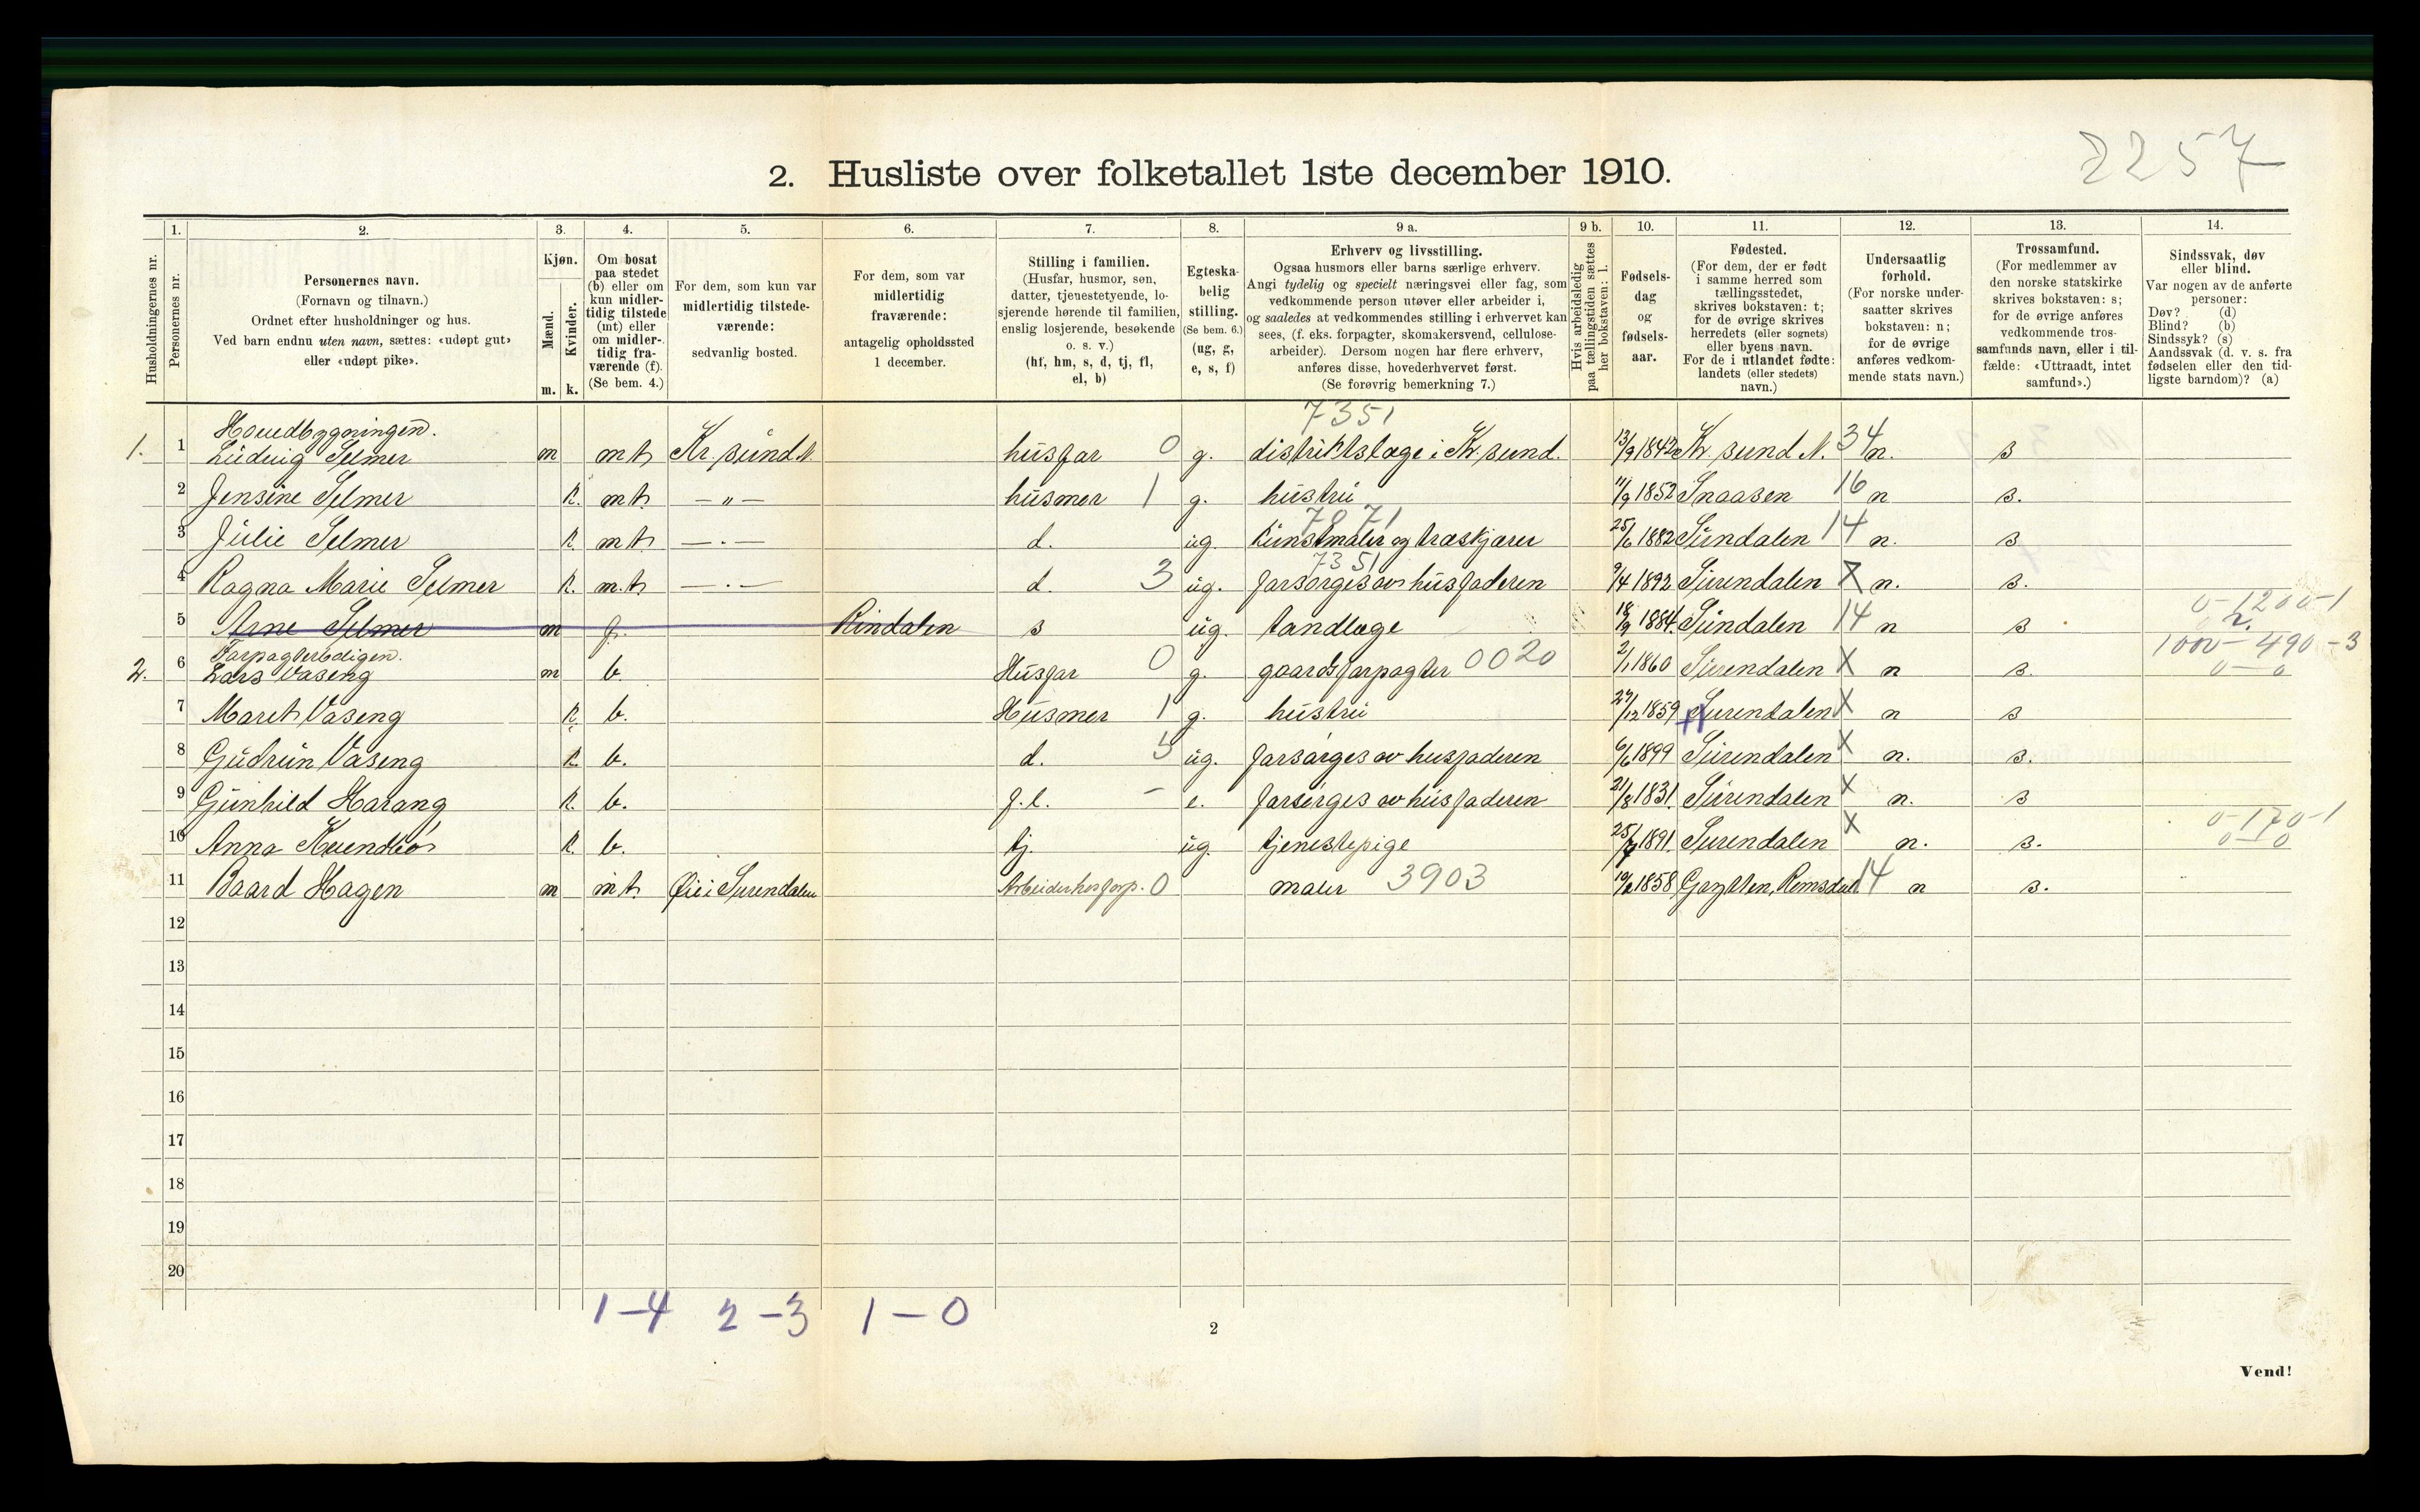 2257
2. Husliste over folketallet 1ste december 1910.
Husholdningernes nr.
1.
Personernes nr.
2.
Personernes navn.
(Fornavn og tilnavn.)
Ordnet efter husholdninger og hus.
Ved barn endnu uten navn, sættes: «udøpt gut»
eller «udøpt pike».
3.
Kjøn.
Mænd.
Kvinder.
m. k.
4.
Om bosat
paa stedet
(b) eller om
kun midler-
tidig tilstede
(mt) eller
om midler-
tidig fra-
værende (f).
(Se bem. 4.)
5.
For dem, som kun var
midlertidig tilstede-
værende:
sedvanlig bosted.
6.
For dem, som var
midlertidig
fraværende:
antagelig opholdssted
1 december.
7.
Stilling i familien.
(Husfar, husmor, søn,
datter, tjenestetyende, lo-
sjerende hørende til familien,
enslig losjerende, besøkende
o. s. v.)
(hf, hm, s, d, tj, fl,
el, b)
8.
Egteska-
belig
stilling.
(Se bem. 6.)
(ug, g,
e, s, f)
9 a.
Erhverv og livsstilling.
Ogsaa husmors eller barns særlige erhverv.
Angi tydelig og specielt næringsvei eller fag, som
vedkommende person utøver eller arbeider i,
og saaledes at vedkommendes stilling i erhvervet kan
sees, (f. eks. forpagter, skomakersvend, cellulose-
arbeider). Dersom nogen har flere erhverv,
anføres disse, hovederhvervet først.
(Se forøvrig bemerkning 7.)
9 b.
Hvis arbeidsledig
paa tællingstiden sættes
her bokstaven: l.
10.
Fødsels-
dag
og
fødsels-
aar.
11.
Fødested.
(For dem, der er født
i samme herred som
tællingsstedet,
skrives bokstaven: t;
for de øvrige skrives
herredets (eller sognets)
eller byens navn.
For de i utlandet fødte:
landets (eller stedets)
navn.)
12.
Undersaatlig
forhold.
(For norske under-
saatter skrives
bokstaven: n;
for de øvrige
anføres vedkom-
mende stats navn.)
13.
Trossamfund.
(For medlemmer av
den norske statskirke
skrives bokstaven: s;
for de øvrige anføres
vedkommende tros-
samfunds navn, eller i til-
fælde: «Uttraadt, intet
samfund».)
14.
Sindssvak, døv
eller blind.
Var nogen av de anførte
personer:
Døv? (d)
Blind? (b)
Sindssyk? (s)
Aandssvak (d. v. s. fra
fødselen eller den tid-
ligste barndom)? (a)
Hovedbygningen. 7351
1. 1 Ludvig Selmer m mt Kr. sund N. husfar 0 g. distriktslæge i Kr. sund. 13/9 1842 Kr. sund N. 34 n. s
2 Jensine Selmer k. mt. —„— husmor 1 g. hustru 11/9 1852 Snaasen 16 n s.
7871
3 Julie Selmer k. mt —.— d. ug. kunstmaler og træskjærer 25/6 1882 Sundalen 14 n. s
7351
4 Ragna Marie Selmer k. m.t. —.— d. 3 ug. forsørges av husfaderen 9/4 1892 Surendalen X n. s.
0-1200-1
5 Arne Selmer m f. Rindalen s ug. tandlæge 18/9 1884. Sundalen 14 n s
Forpagterboligen. 1000-490-3
2. 6 Lars Vaseng m b. Husfar 0 g. gaardsforpagter 0020 2/1 1860 Surendalen X n s. 0-0
7 Marit Vaseng k. b. Husmor 1 g. hustru 27/12 1859 Surendalen X n s
8 Gudrun Vaseng k. b. d. 5 ug. forsørges av husfaderen 6/6 1899 Surendalen X n. s.
9 Gunhild Harang k. b. f.l. – e. forsørges av husfaderen 21/8 1831. Surendalen X n. s
0-170-1
10 Anna k. b. tj. ug. tjenestepige 25/ 1891. Surendalen X n. s. 0-0
11 Baard Hagen m mt. Øie i Surendalen Arbeider hos forp. 0 maler 3903 1858 Romsdal 14 n s.
12
13
14
15
16
17
18
19
20
1-4 2-3 1-0
2
Vend!